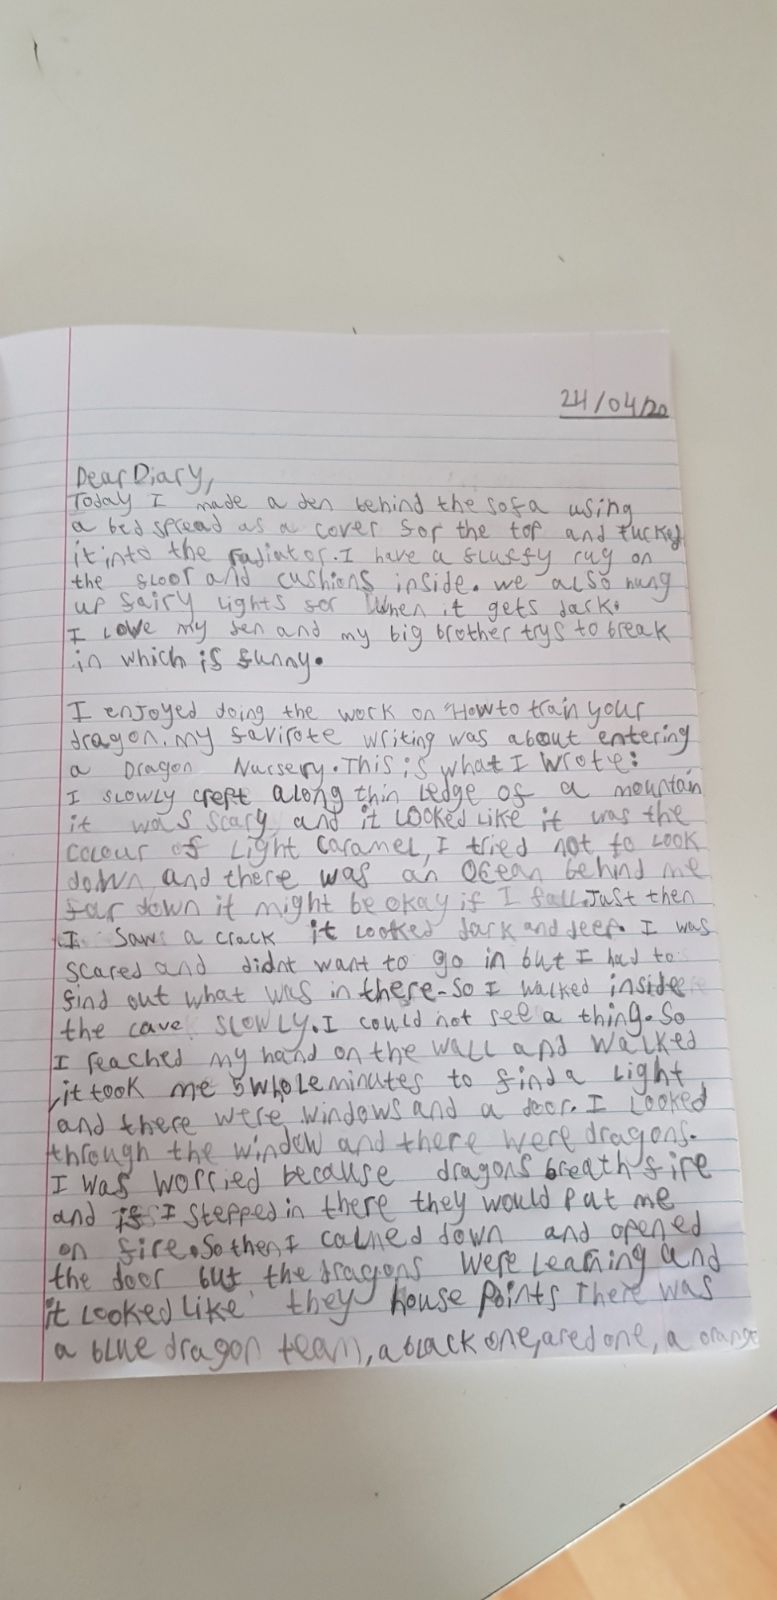 24/04/20
Dear Diary,
Today I made a den behind the sofa using
a bed spread as a cover for the top and tucked
it into the radiator. I have a fluffy rug on
the floor and cushions inside. we also hung
up fairy lights for when it gets dark.
I love my den and my big brother trys to break
in which is funny.
I enjoyed doing the work on "How to train your
dragon. my favirote writing was about entering
a Dragon Nursery. This is what I wrote:
I slowly crept along thin ledge of a mountain
it was scary and it looked like it was the
colour of light caramel, I tried not to look
down and there was an ocean behind me
far down it might be okay if I fall. Just then
I saw a crack it looked dark and deep. I was
scared and didnt want to go in but I had to
find out what was in there-so I walked inside
the cave slowly. I could not see a thing. So
I reached my hand on the wall and walked
,it took me 5 whole minutes to find a light
and there were windows and a door. I looked
through the window and there were dragons.
I was worried because dragons breath fire
and if I stepped in there they would put me
on fire. So then I calmed down and opened
the door but the dragons were learning and
it looked like they house points There was
a blue dragon team, a black one, a red one, a orange